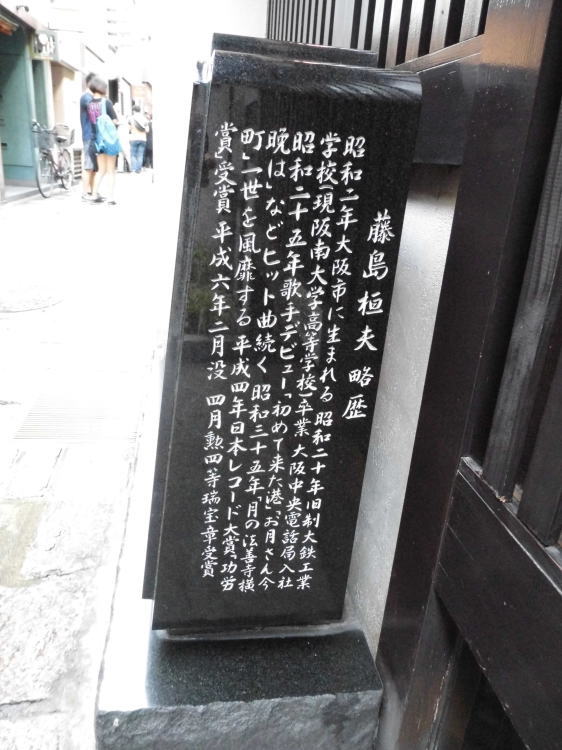 藤島桓夫 略歴
昭和二年大阪市に生まれる 昭和二十年旧制大鉄工業
学校(現阪南大学高等学校)卒業 大阪中央電話局入社
昭和二十五年歌手デビュー「初めて来た港」「お月さん今
晩は」などヒット曲続く 昭和三十五年「月の法善寺横
町」一世を風靡する 平成四年日本レコード大賞「功労
賞」受賞 平成六年二月没 四月勲四等瑞宝章受賞